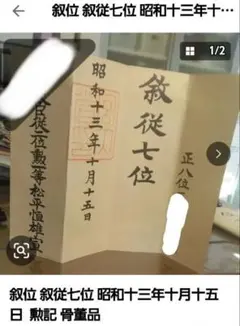 叙位 叙従七位 昭和十三年十…
1/2
正八位
敘從七位
昭和十三年十月十五日
宮內大臣從二位勲一等松平恒雄宣
叙位 叙従七位 昭和十三年十月十五
日 勲記 骨董品